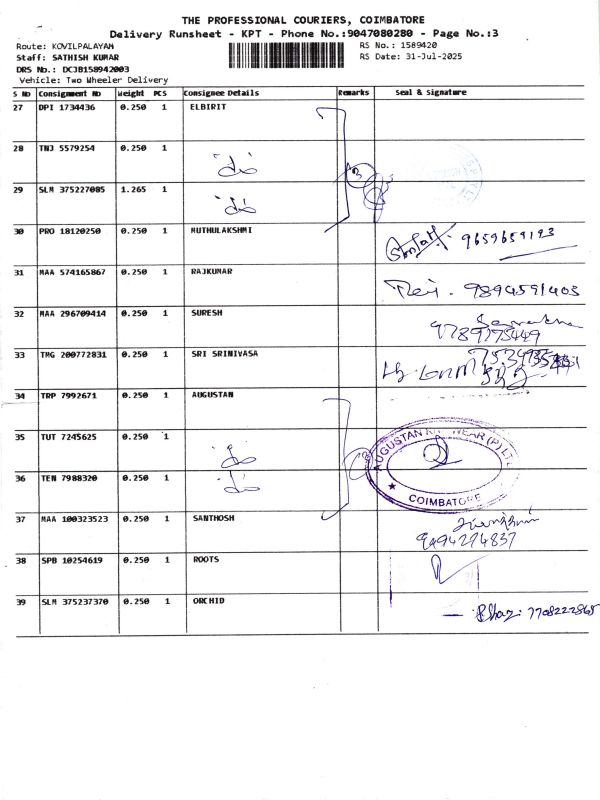 THE PROFESSIONAL COURIERS, COIMBATORE
Delivery Runsheet - KPT - Phone No.:9047080280 - Page No.:3
Route: KOVILPALAYAM RS No.: 1589420
Staff: SATHISH KUMAR RS Date: 31-Jul-2025
DRS No.: DCJB158942003
Vehicle: Two Wheeler Delivery
S No Consignment No Weight PCS Consignee Details Remarks Seal & Signature
27 DPI 1734436 0.250 1 ELBIRIT
28 TNJ 5579254 0.250 1
29 SLM 375227085 1.265 1
30 PRO 18120250 0.250 1 MUTHULAKSHMI 9659659193
31 MAA 574165867 0.250 1 RAJKUMAR 9894591403
32 MAA 296709414 0.250 1 SURESH
9789175449
33 TMG 200772831 0.250 1 SRI SRINIVASA
34 TRP 7992671 0.250 1 AUGUSTAN
35 TUT 7245625 0.250 1
AUGUSTAN KNITWEAR (P) LTD
36 TEN 7988320 0.250 1
COIMBATORE
37 MAA 100323523 0.250 1 SANTHOSH
9494294837
38 SPB 10254619 0.250 1 ROOTS
39 SLM 375237370 0.250 1 ORCHID
7708222865